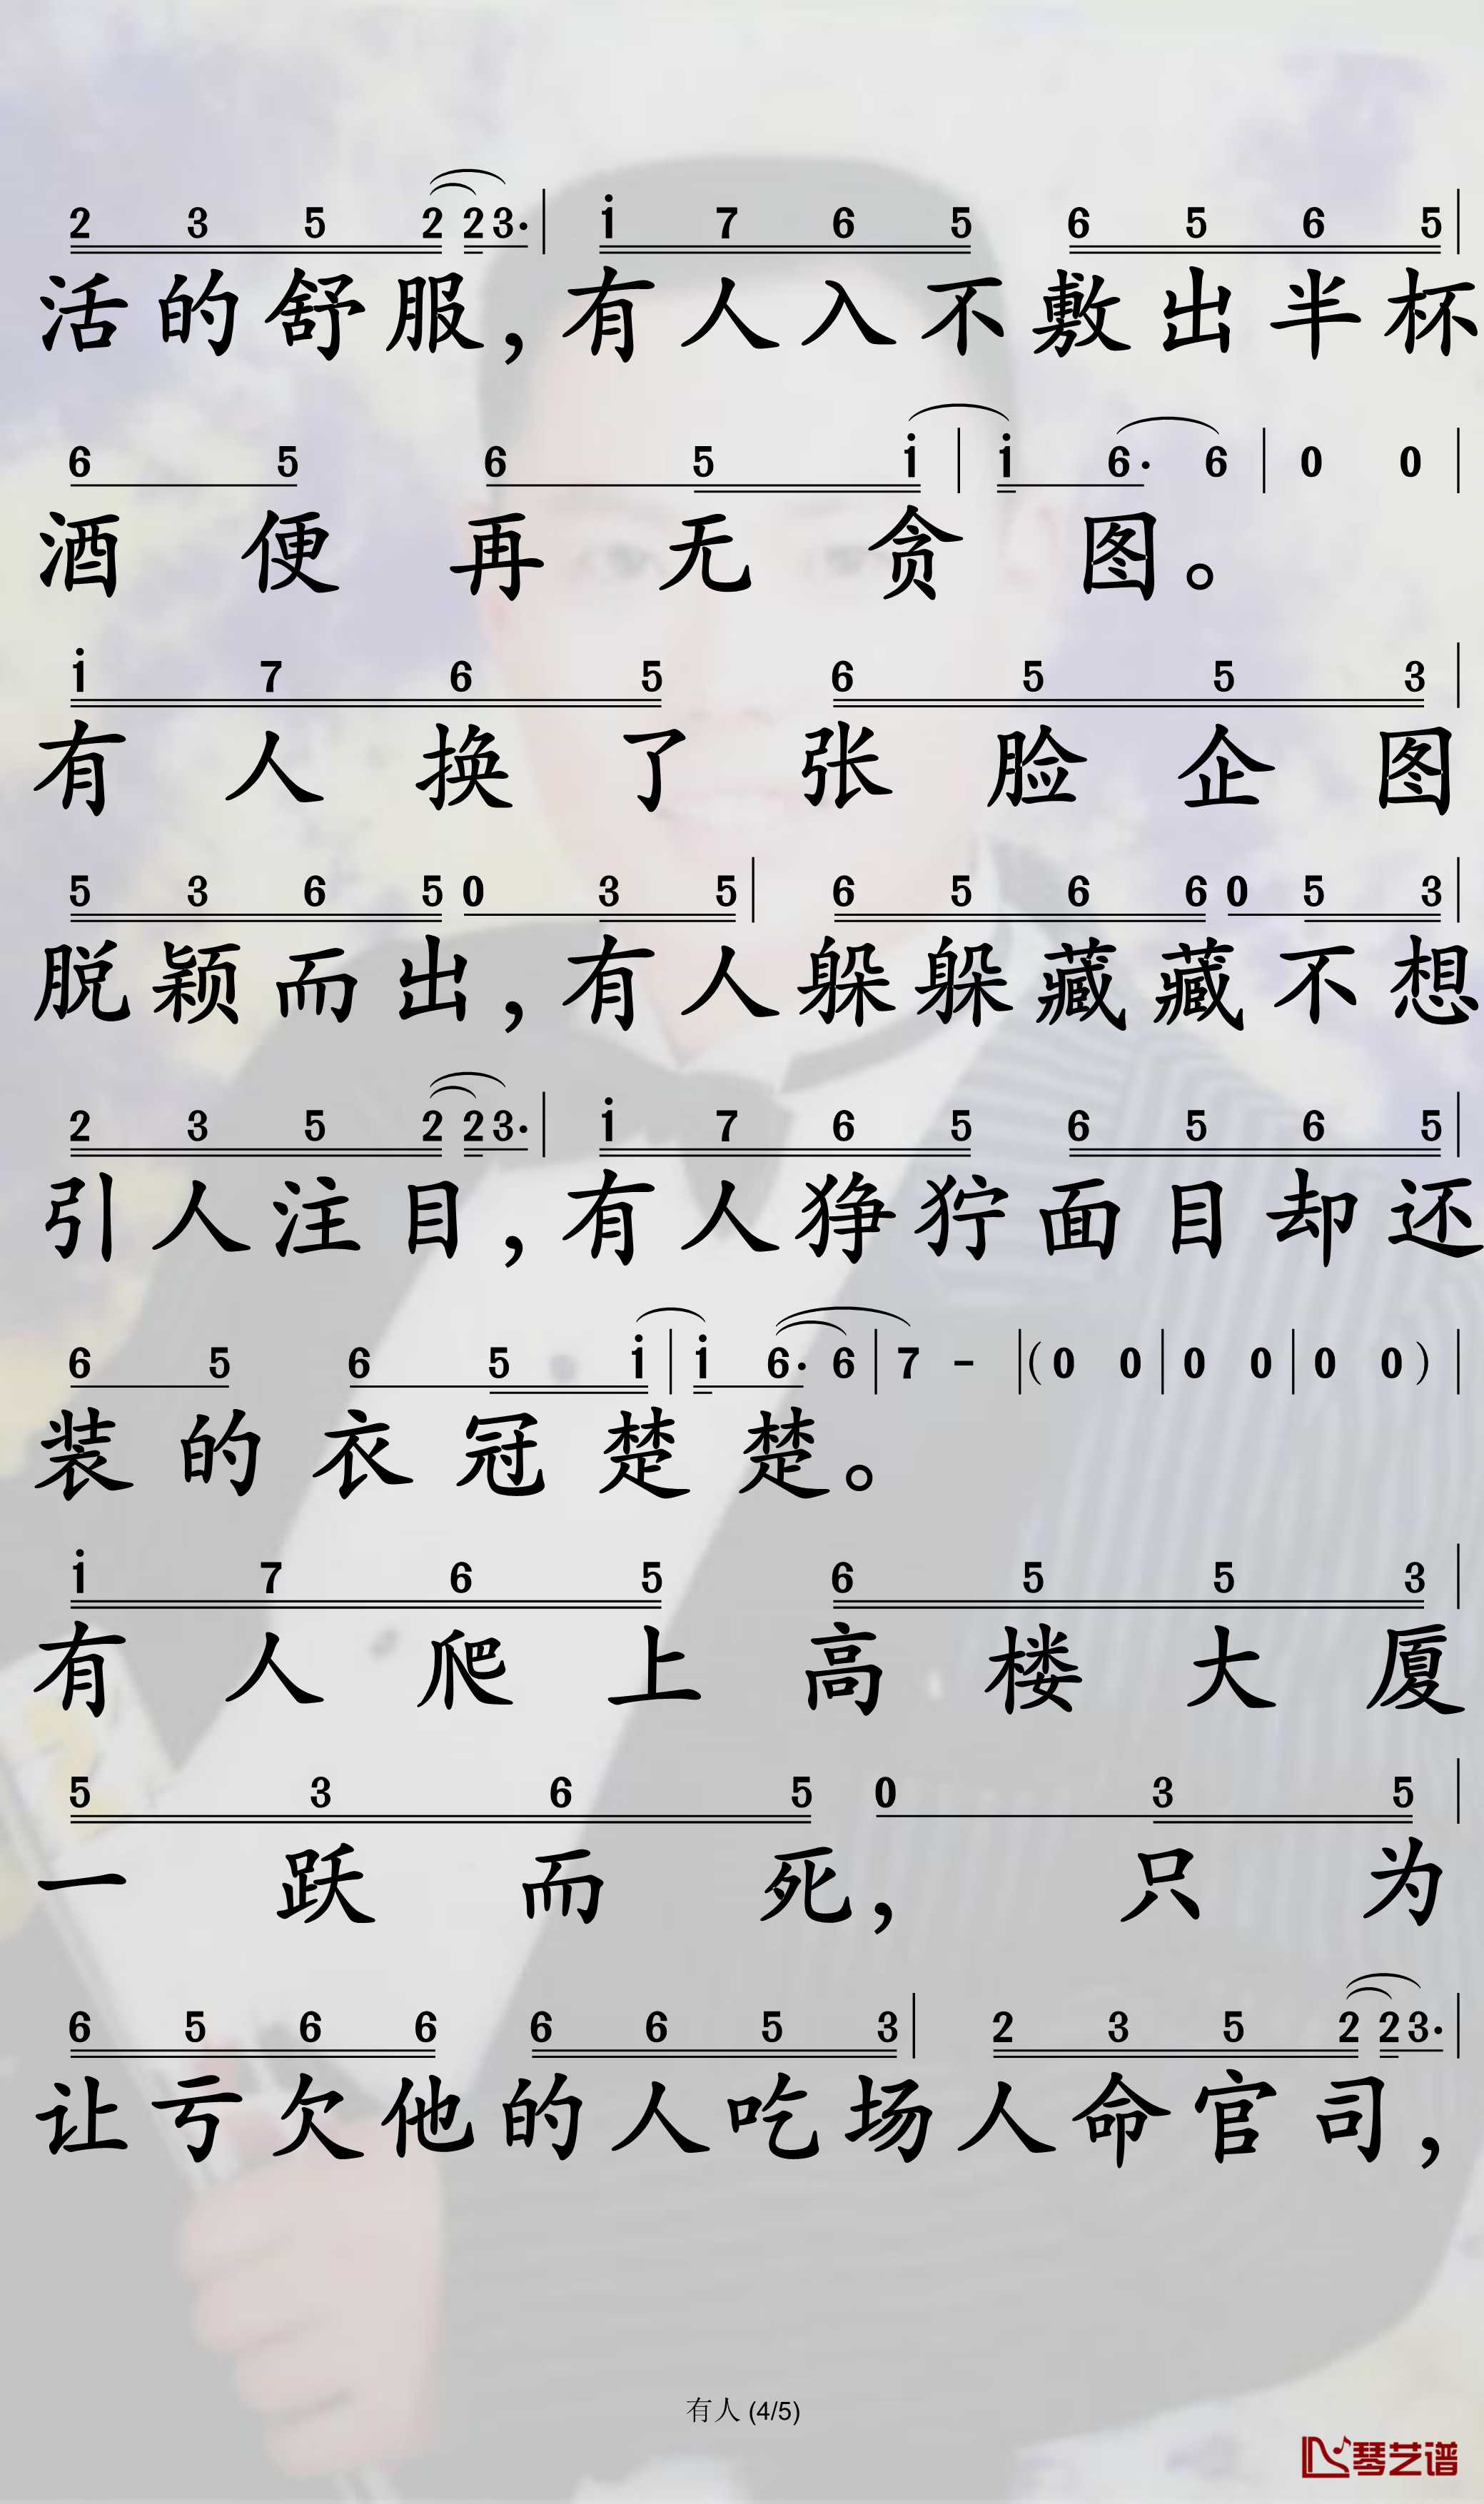 2 3 5 2 2 3· | i 7 6 5 6 5 6 5 |
活的舒服，有人入不敷出半杯
6 5 6 5 i | i 6· 6 | 0 0 |
酒便再无贪图。
i 7 6 5 6 5 5 3 |
有人换了张脸企图
5 3 6 5 0 3 5 | 6 5 6 6 0 5 3 |
脱颖而出，有人躲躲藏藏不想
2 3 5 2 2 3· | i 7 6 5 6 5 6 5 |
引人注目，有人狰狞面目却还
6 5 6 5 i | i 6· 6 | 7 - | (0 0 | 0 0 | 0 0) |
装的衣冠楚楚。
i 7 6 5 6 5 5 3 |
有人爬上高楼大厦
5 3 6 5 0 3 5 |
一跃而死，只为
6 5 6 6 6 6 5 3 | 2 3 5 2 2 3· |
让亏欠他的人吃场人命官司，
有人 (4/5)
琴艺谱